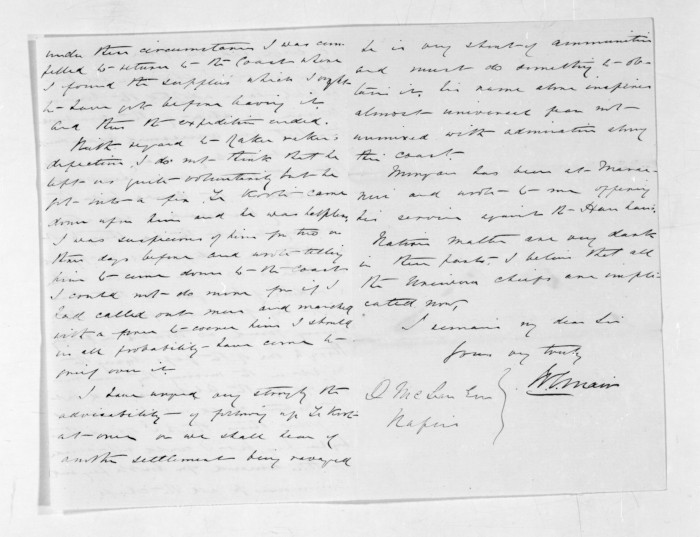 under these circumstances I was com-
pelled to return to the Coast where
I found the supplies which I ought
to have got before having it.
And thus the expedition ended.
With regard to
defection, I do not think that he
left us quite voluntarily but he
got into a fix, Te Kooti came
down upon him and he was helpless,
I was suspicious of him for two or
three days before and wrote telling
him to come down to the Coast
I could not do more for if I
had called out men and marched
with a force to coerce him I should
in all probability have come to
grief over it
I have urged very strongly the
advisability of following up Te Kooti
at once or we shall hear of
another settlement being ravaged
he is very short of ammunition
and must do something to ob-
tain it, his name alone inspires
almost universal fear not
unmixed with admiration along
this coast.
has been at
and wrote to me offering
his services against the Hau haus.
Native matters are very dark
in these parts. I believe that all
the Urewera chiefs are impli-
cated now,
I remain my dear Sir
Yours very truly
D McLean Esq
Napier